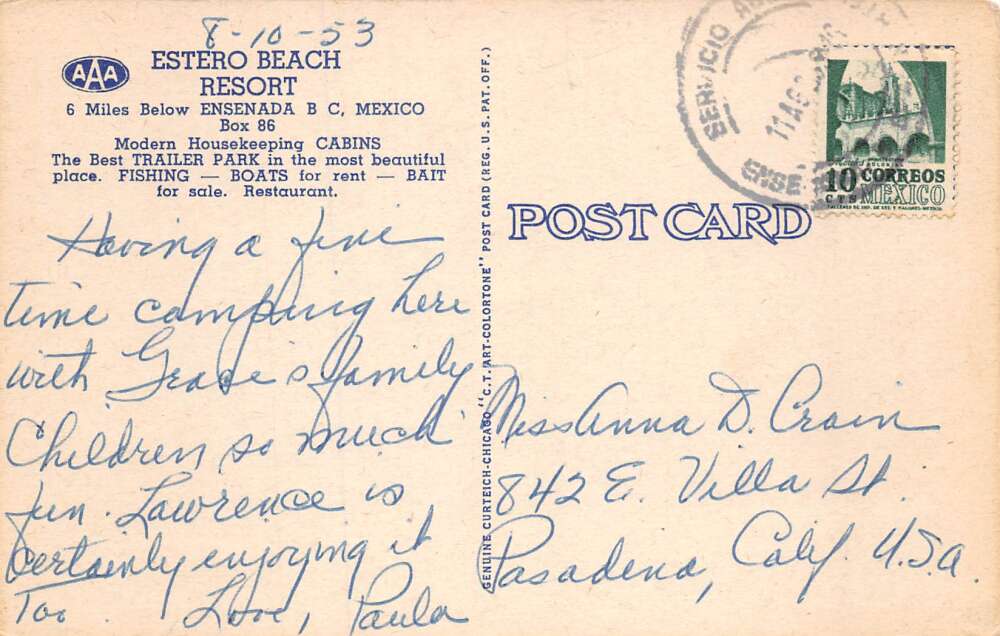 8-10-53
AAA
ESTERO BEACH
RESORT
6 Miles Below ENSENADA B C, MEXICO
Box 86
Modern Housekeeping CABINS
The Best TRAILER PARK in the most beautiful
place. FISHING — BOATS for rent — BAIT
for sale. Restaurant.
Having a fine
time camping here
with Grace's family
Children so much
fun. Lawrence is
certainly enjoying it
Too. Love, Paula
GENUINE CURTEICH-CHICAGO "C.T. ART-COLORTONE" POST CARD (REG. U.S. PAT. OFF.)
SERVICIO
11 AG
ENSE
10 CORREOS
CTS MEXICO
POST CARD
Miss Anna D. Crain
842 E. Villa St.
Pasadena, Calif. U.S.A.